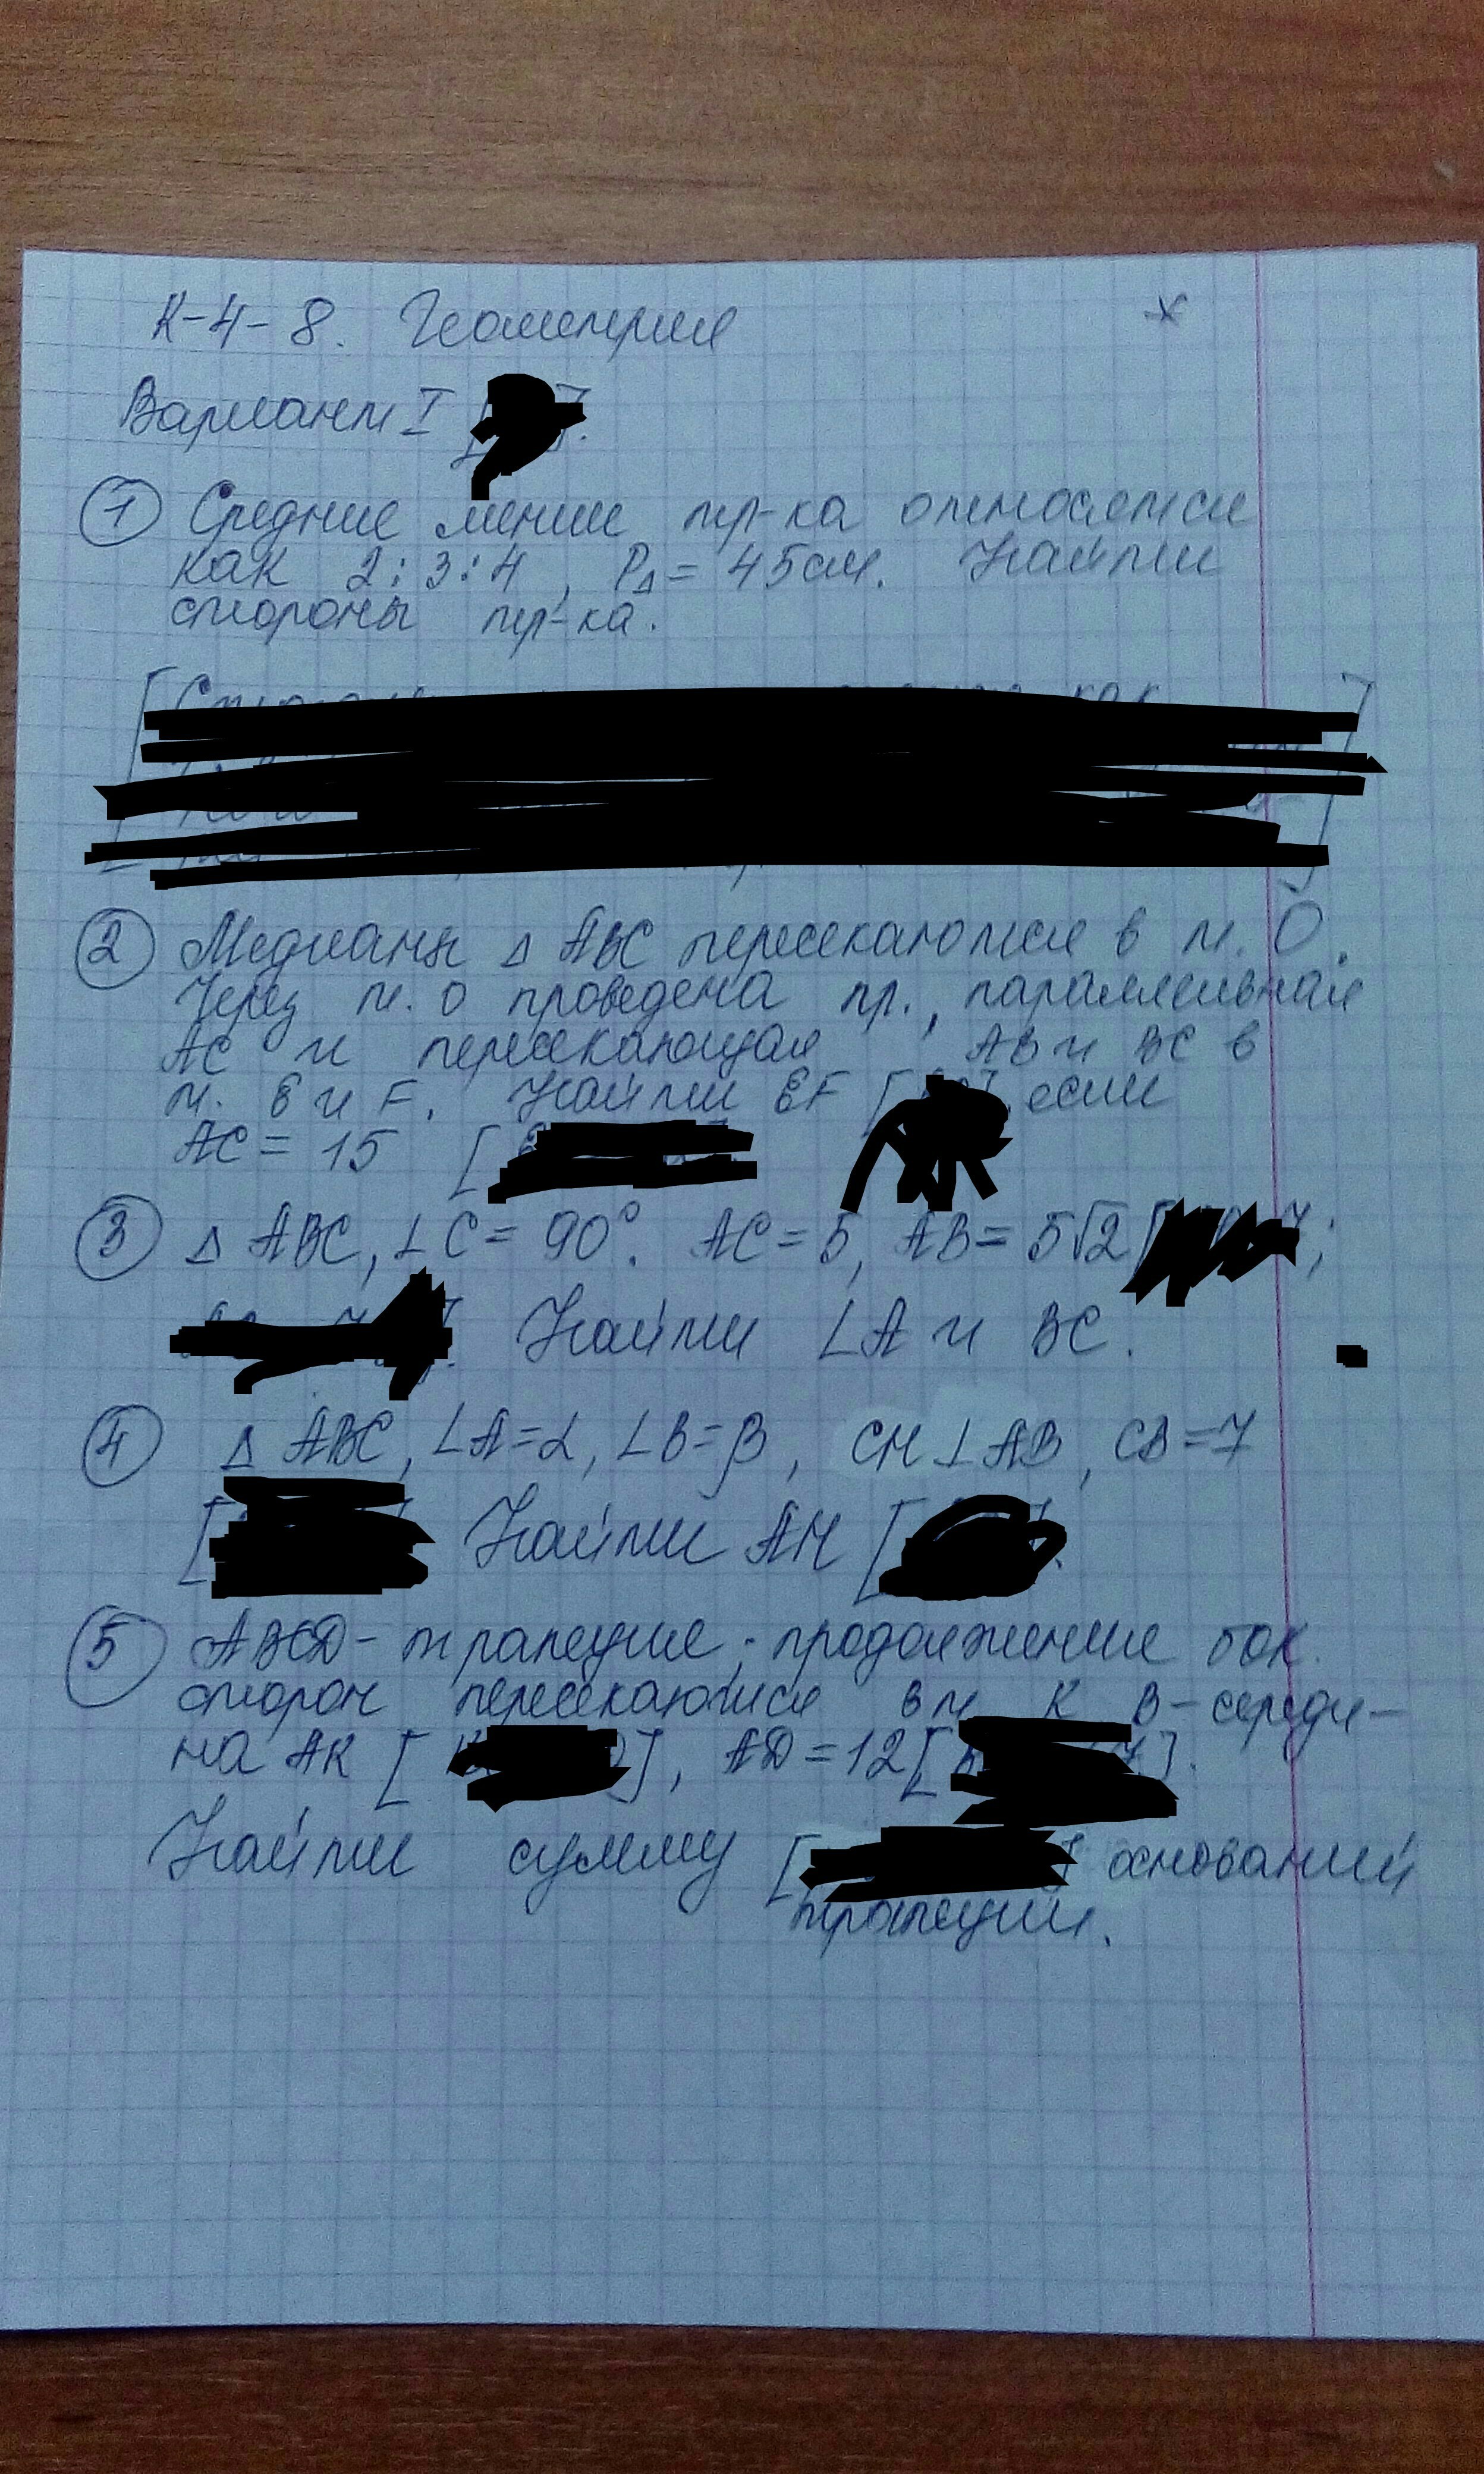 К-4-8. Геометрия
Вариант I [ ].
① Средние линии тр-ка относятся
как 2:3:4, P△ = 45см. Найти
стороны тр-ка.
② Медианы △ ABC пересекаются в т. О.
Через т. О проведена пр., параллельная
AC и пересекающая AB и BC в
т. E и F. Найти EF [ если
AC = 15 [
③ △ ABC, ∠C = 90°. AC = 5, AB = 5√2 [ ];
Найти ∠A и BC.
④ △ ABC, ∠A=α, ∠B=β, CH⊥AB, CB=7
[ Найти AH [ ].
⑤ ABCD - трапеция; продолжение бок.
сторон пересекаются в т К В-середи-
на AK [ ], AD = 12 [ ].
Найти сумму [ ] оснований
трапеции.